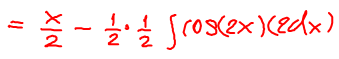 = x/2 - 1/2 · 1/2 ∫cos(2x)(2dx)